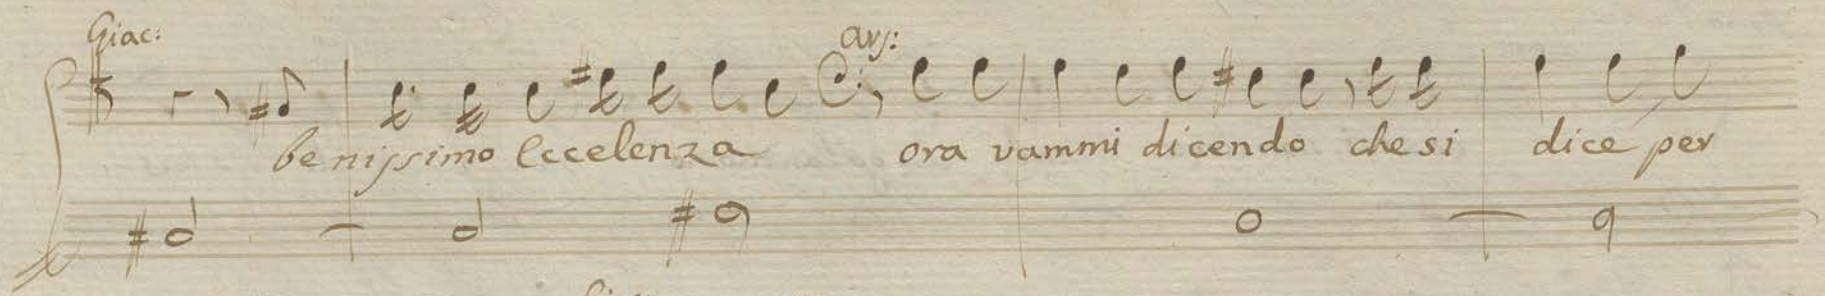 Giac: Ars:
benissimo Eccelenza ora vammi dicendo che si dice per